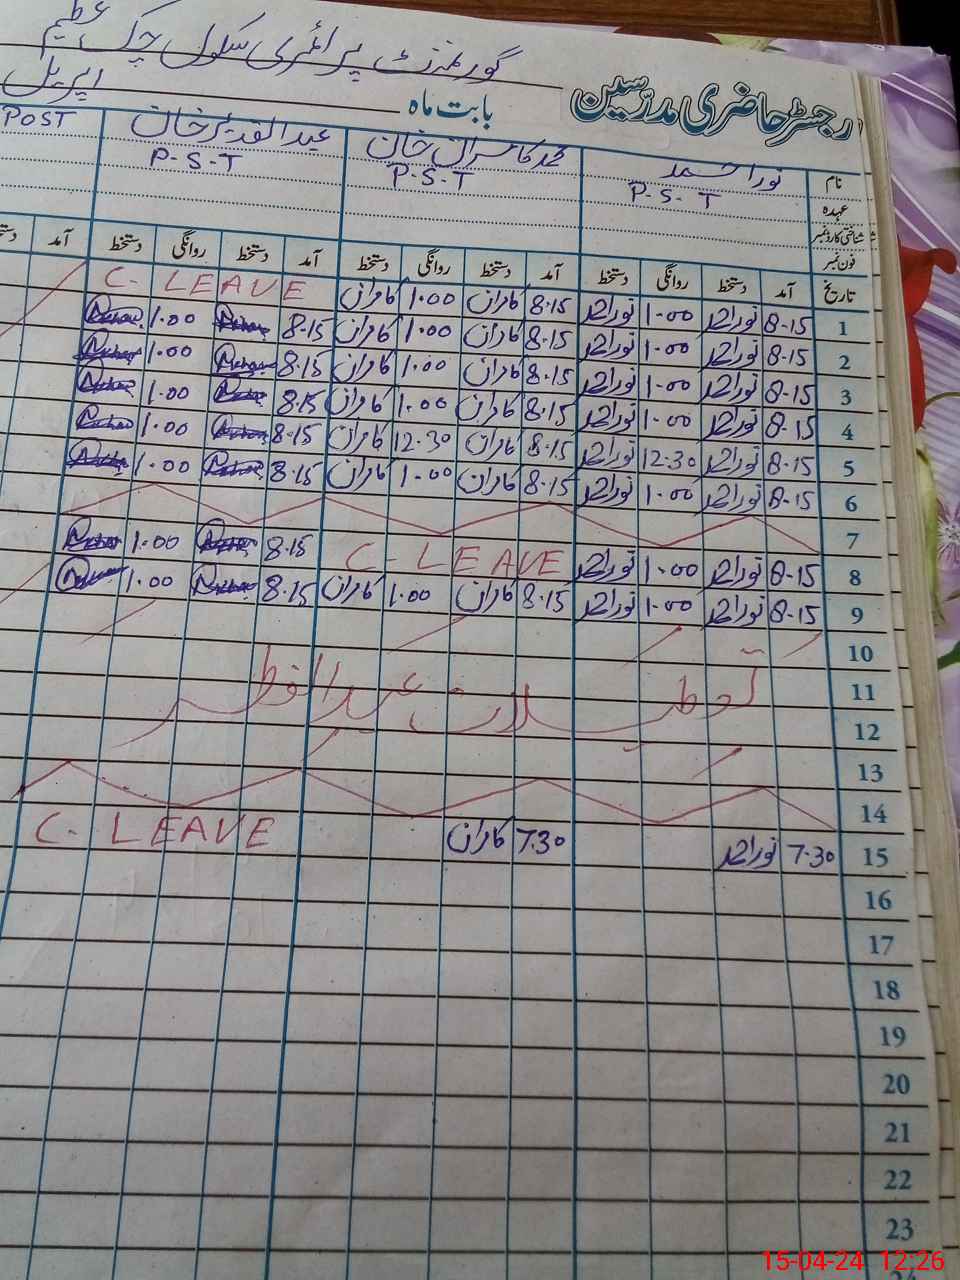 گورنمنٹ پرائمری سکول چک عظیم
رجسٹر حاضری مدرسین بابت ماہ اپریل
نام نور احمد محمد کامران خان عبدالقدیر خان POST
عہدہ P-S-T P-S-T P-S-T
شناختی کارڈ نمبر
فون نمبر
تاریخ آمد دستخط روانگی دستخط آمد دستخط روانگی دستخط آمد دستخط روانگی دستخط آمد
1 8-15 نور احمد 1-00 نور احمد 8-15 کامران 1.00 کامران C-LEAVE
2 8-15 نور احمد 1-00 نور احمد 8-15 کامران 1.00 کامران 8-15 1.00
3 8-15 نور احمد 1-00 نور احمد 8-15 کامران 1.00 کامران 8-15 1.00
4 8-15 نور احمد 1-00 نور احمد 8-15 کامران 1.00 کامران 8-15 1.00
5 8-15 نور احمد 12-30 نور احمد 8-15 کامران 12-30 کامران 8-15 1.00
6 8-15 نور احمد 1-00 نور احمد 8-15 کامران 1.00 کامران 8-15 1.00
7
8 8-15 نور احمد 1-00 نور احمد C-LEAVE 8-15 1.00
9 8-15 نور احمد 1-00 نور احمد 8-15 کامران 1.00 کامران 8-15 1.00
10
11
عیدالفطر
12
13
14
15 7-30 نور احمد 7-30 کامران C-LEAVE
16
17
18
19
20
21
22
23
15-04-24 12:26